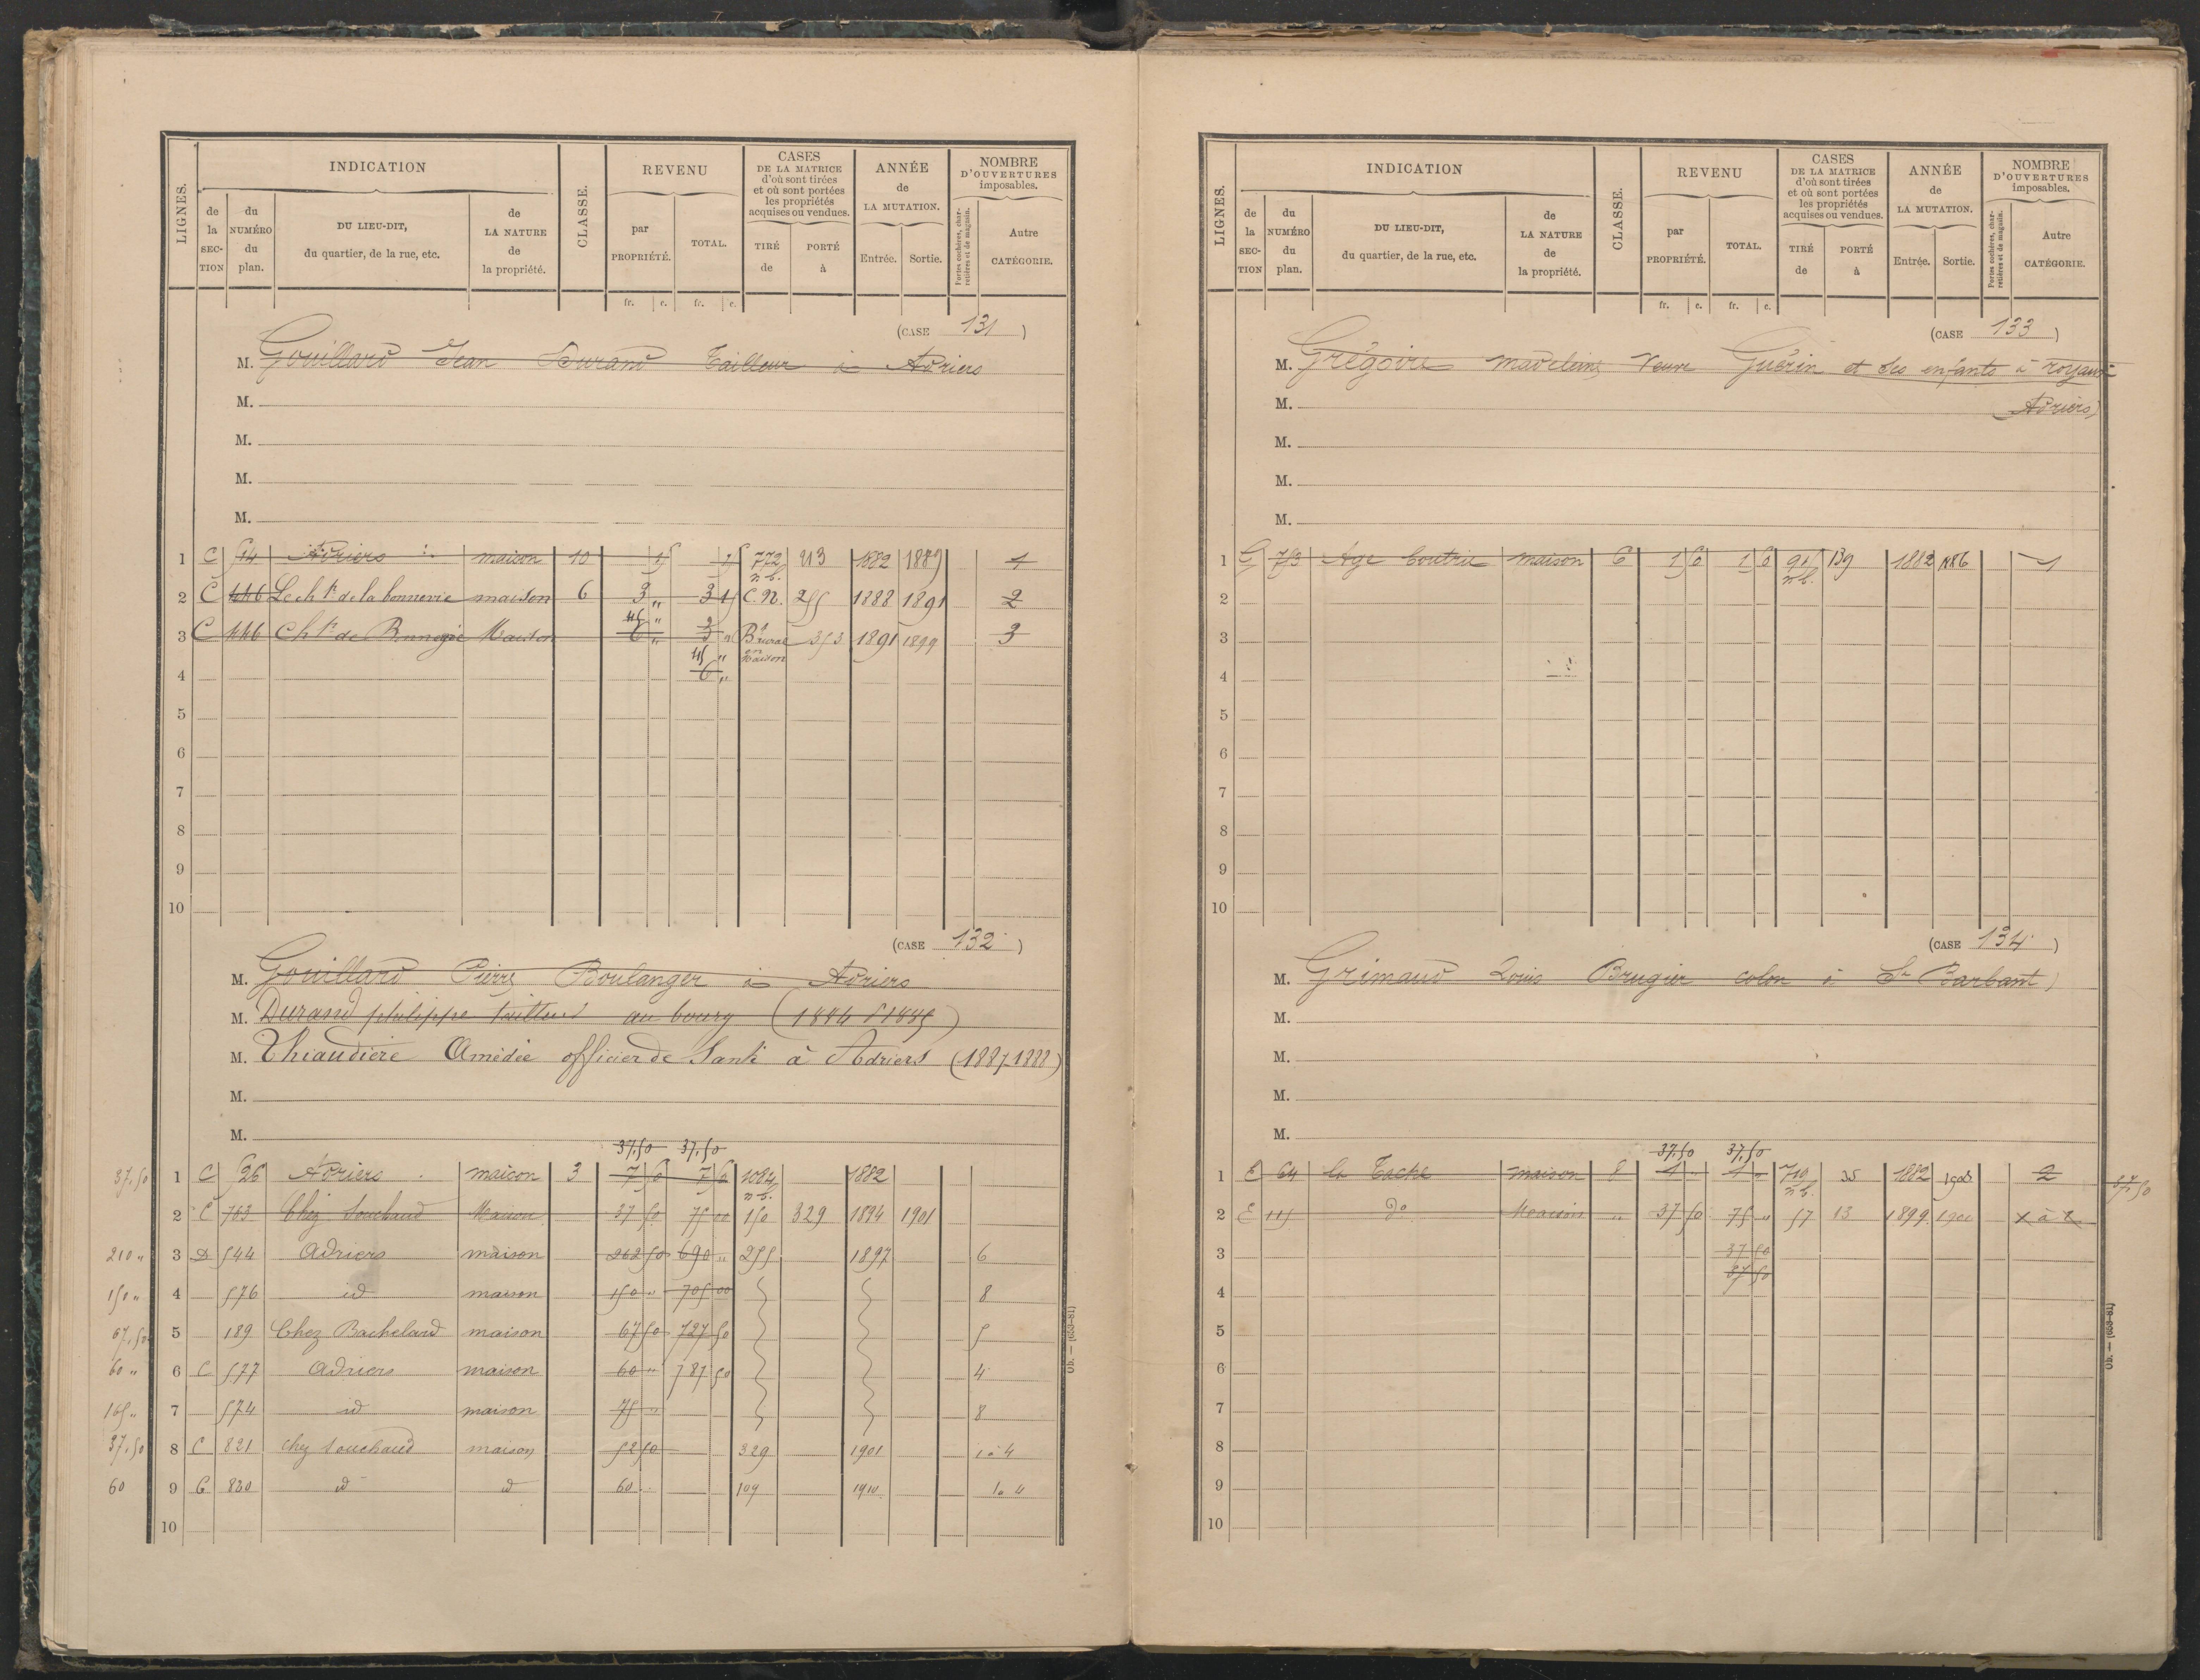 LIGNES. INDICATION CLASSE. REVENU CASES DE LA MATRICE d'où sont tirées et où sont portées les propriétés acquises ou vendues. ANNÉE de LA MUTATION. NOMBRE D'OUVERTURES imposables.
de la SECTION du NUMÉRO du plan. DU LIEU-DIT, du quartier, de la rue, etc. de LA NATURE de la propriété. par PROPRIÉTÉ. TOTAL. TIRÉ de PORTÉ à Entrée. Sortie. Portes cochères, charretières et de magasin. Autre CATÉGORIE.
fr. c. fr. c.
(CASE 131)
M. Gouillard Jean Durand Tailleur à Adriers
M.
M.
M.
M.
1 C 514 Adriers maison 10 772 n.b. 213 1882 1889 1
2 C 446 Le ch de la bonnerie maison 6 3 " C.N. 255 1888 1891 2
3 C 446 Ch de Maison 45 " 6 " 3 " B rural en Maison 353 1891 1899 3
45 "
4 6 "
5
6
7
8
9
10
(CASE 132)
M. Gouillard Pierre Boulanger à Adriers
M. Durand philippe tailleur au bourg (1884 1885)
M. Thiaudière Amédée officier de Santé à Adriers (1887-1888)
M.
M.
37,50 37,50
37,50 1 C 526 Adriers maison 3 7 50 7 50 1084 n.b. 1882
2 C 763 Chez Souchaud Maison 37 50 75 00 150 329 1894 1901
210 " 3 D 544 Adriers maison 262 50 690 " 255 1897 6
150 " 4 576 id maison 150 " 705 00 8
67,50 5 189 Chez Bachelard maison 67 50 727 50 5
60 " 6 C 577 Adriers maison 60 " 787 50 4
165 " 7 574 id maison 75 " 8
37,50 8 C 821 chez Souchaud maison 52 50 329 1901 1 à 4
60 9 C 830 id id 60 109 1910 1 à 4
10
Ub. — (653-81)
LIGNES. INDICATION CLASSE. REVENU CASES DE LA MATRICE d'où sont tirées et où sont portées les propriétés acquises ou vendues. ANNÉE de LA MUTATION. NOMBRE D'OUVERTURES imposables.
de la SECTION du NUMÉRO du plan. DU LIEU-DIT, du quartier, de la rue, etc. de LA NATURE de la propriété. par PROPRIÉTÉ. TOTAL. TIRÉ de PORTÉ à Entrée. Sortie. Portes cochères, charretières et de magasin. Autre CATÉGORIE.
fr. c. fr. c.
(CASE 133)
M. Grégoire Madeleine Veuve Guérin et ses enfants à
M. (Adriers)
M.
M.
M.
1 G 753 Age Boutrie maison 6 1 50 1 50 n.b. 139 1882 1886 1
2
3
4
5
6
7
8
9
10
(CASE 134)
M. Grimaud Louis Brugier colon à St Barbant
M.
M.
M.
M.
37,50 37,50
1 E 64 la Tache maison 8 1 " 1 " 719 n.b. 35 1882 2 37,50
2 E 115 do Maison " 37 50 75 " 57 13 1899 1900
3 37 50
37 50
4
5
6
7
8
9
10
Ub. — (653-81)